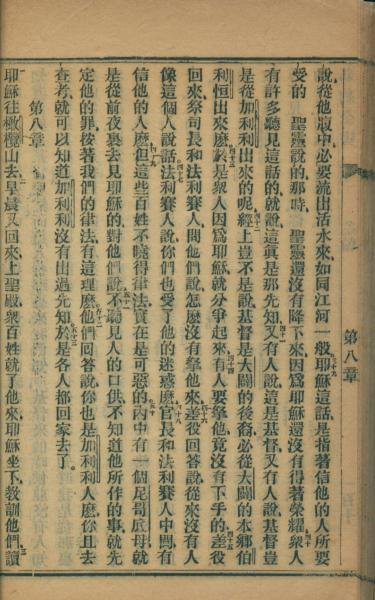 說從他腹中必要流出活水來如同江河一般耶穌這話是指著信他的人所要
受的 聖靈說的那時 聖靈還沒有降下來因爲耶穌還沒有得著榮耀衆人
有許多聽見這話的就說這眞是那先知又有人說這是基督又有人說基督豈
是從加利利出來的呢經上豈不是說基督是大闢的後裔必從大闢的本鄉伯
利恒出來麽於是衆人因爲耶穌就分爭起來有人要拏他竟沒有下手的差役
回來祭司長和法利賽人問他們說怎麽沒有拏他來差役回答說從來沒有人
像這個人說話法利賽人說你們也受了他的迷惑麽官長和法利賽人中間有
信他的人麽但這些百姓不曉得律法實在是可惡的內中有一個尼哥底母就
是從前夜裏去見耶穌的對他們說不聽見人的口供不知道他所作的事就先
定他的罪按著我們的律法有這理麽他們回答說你也是加利利人麽你且去
查考就可以知道加利利沒有出過先知於是各人都回家去了
第八章
耶穌往橄欖山去早晨又回來上聖殿衆百姓就了他來耶穌坐下教訓他們讀
第八章